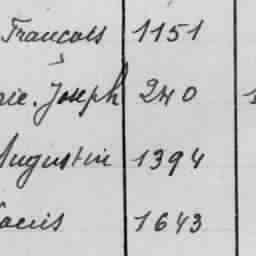 Francois 1151
rie. Joseph 240
Augustin 1394
Louis 1643